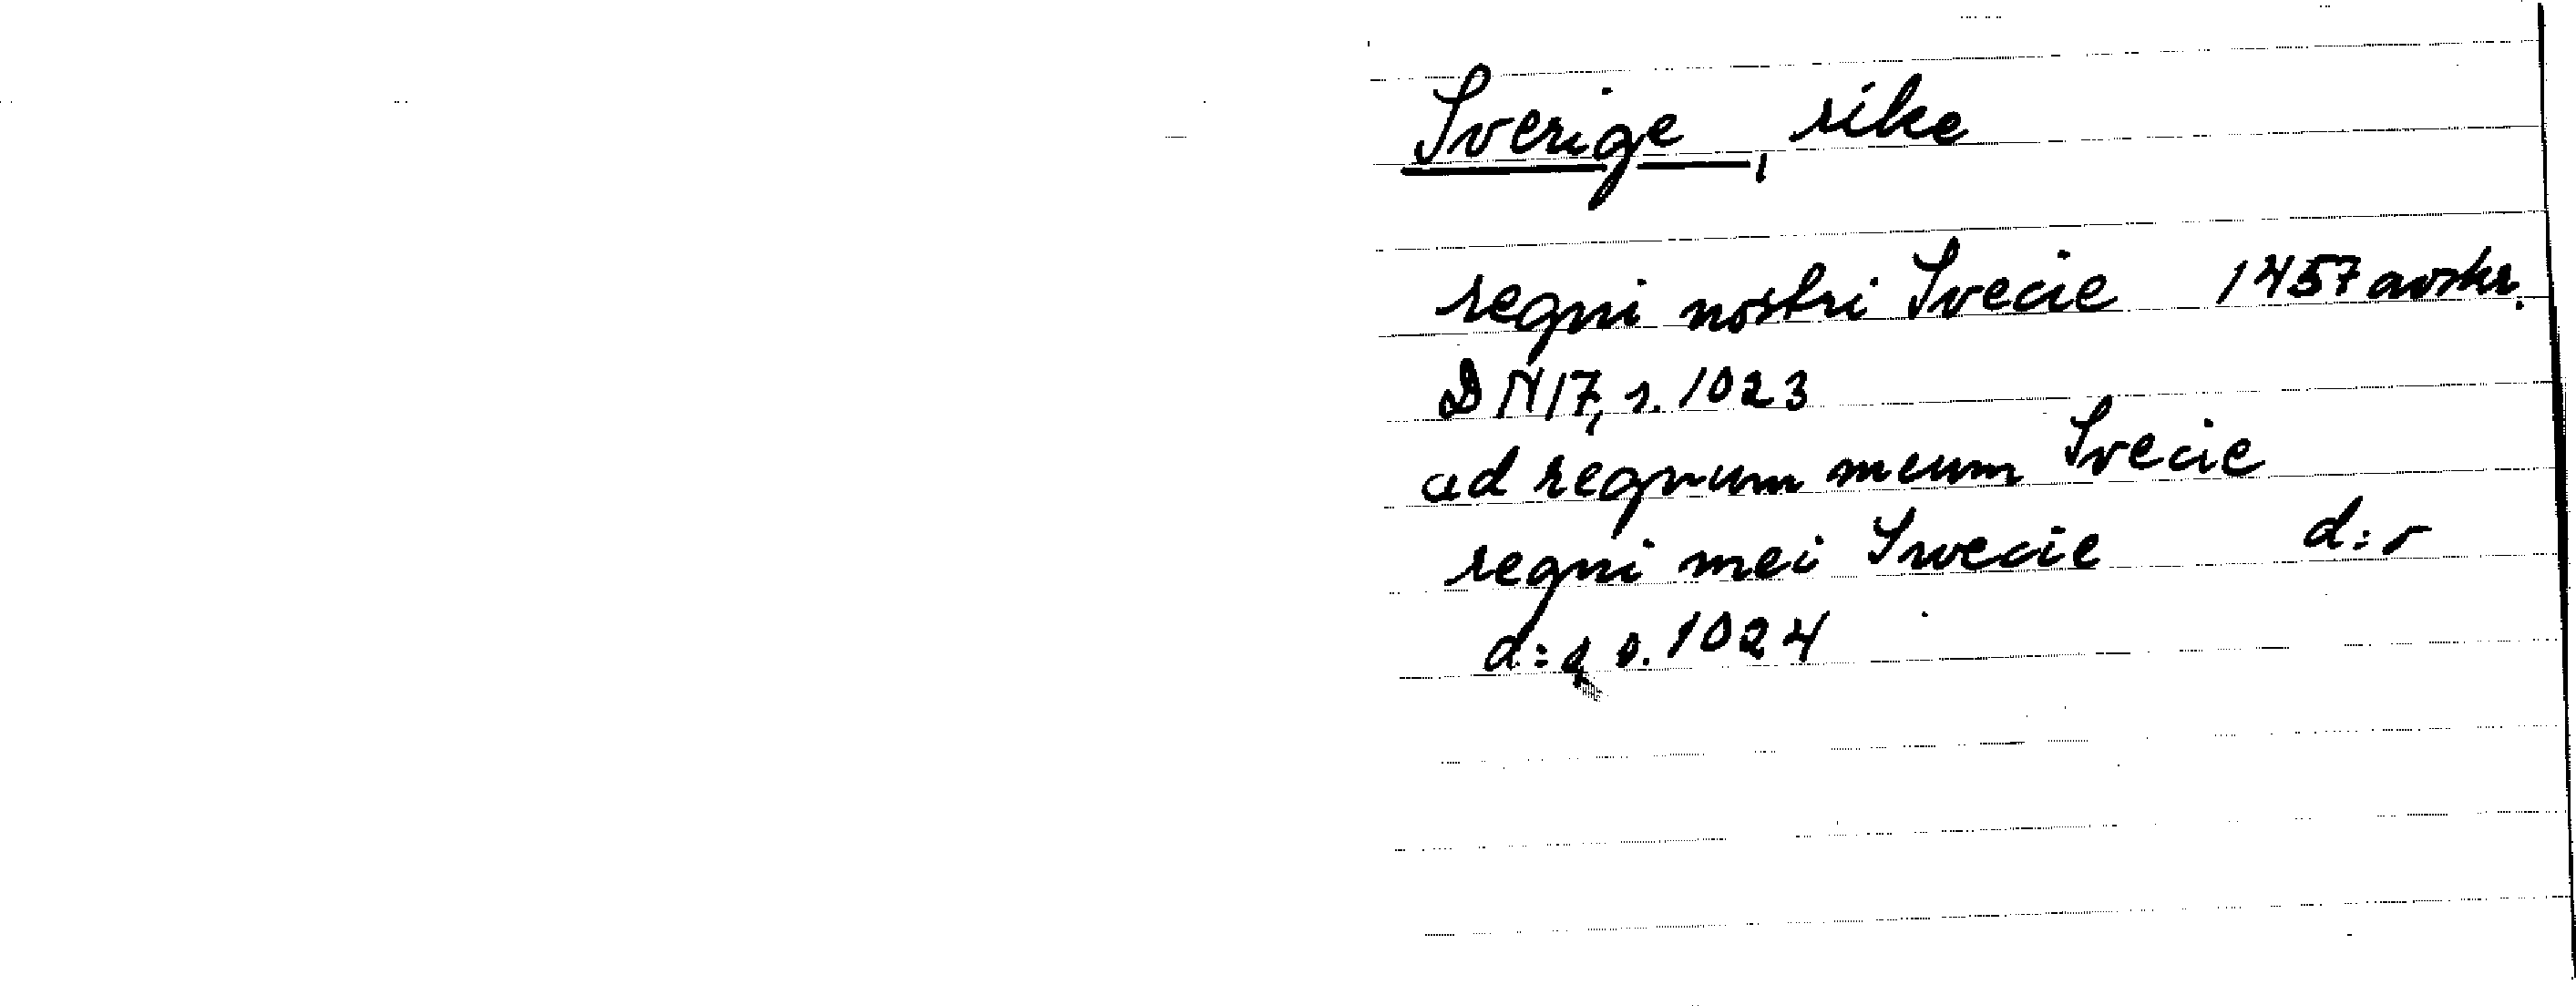 Sverige, rike
regni nostri Svecie 1457 avskr.
DN 17, s. 1023
ad regnum meum Svecie
regni mei Swecie d:o
d:o s. 1024